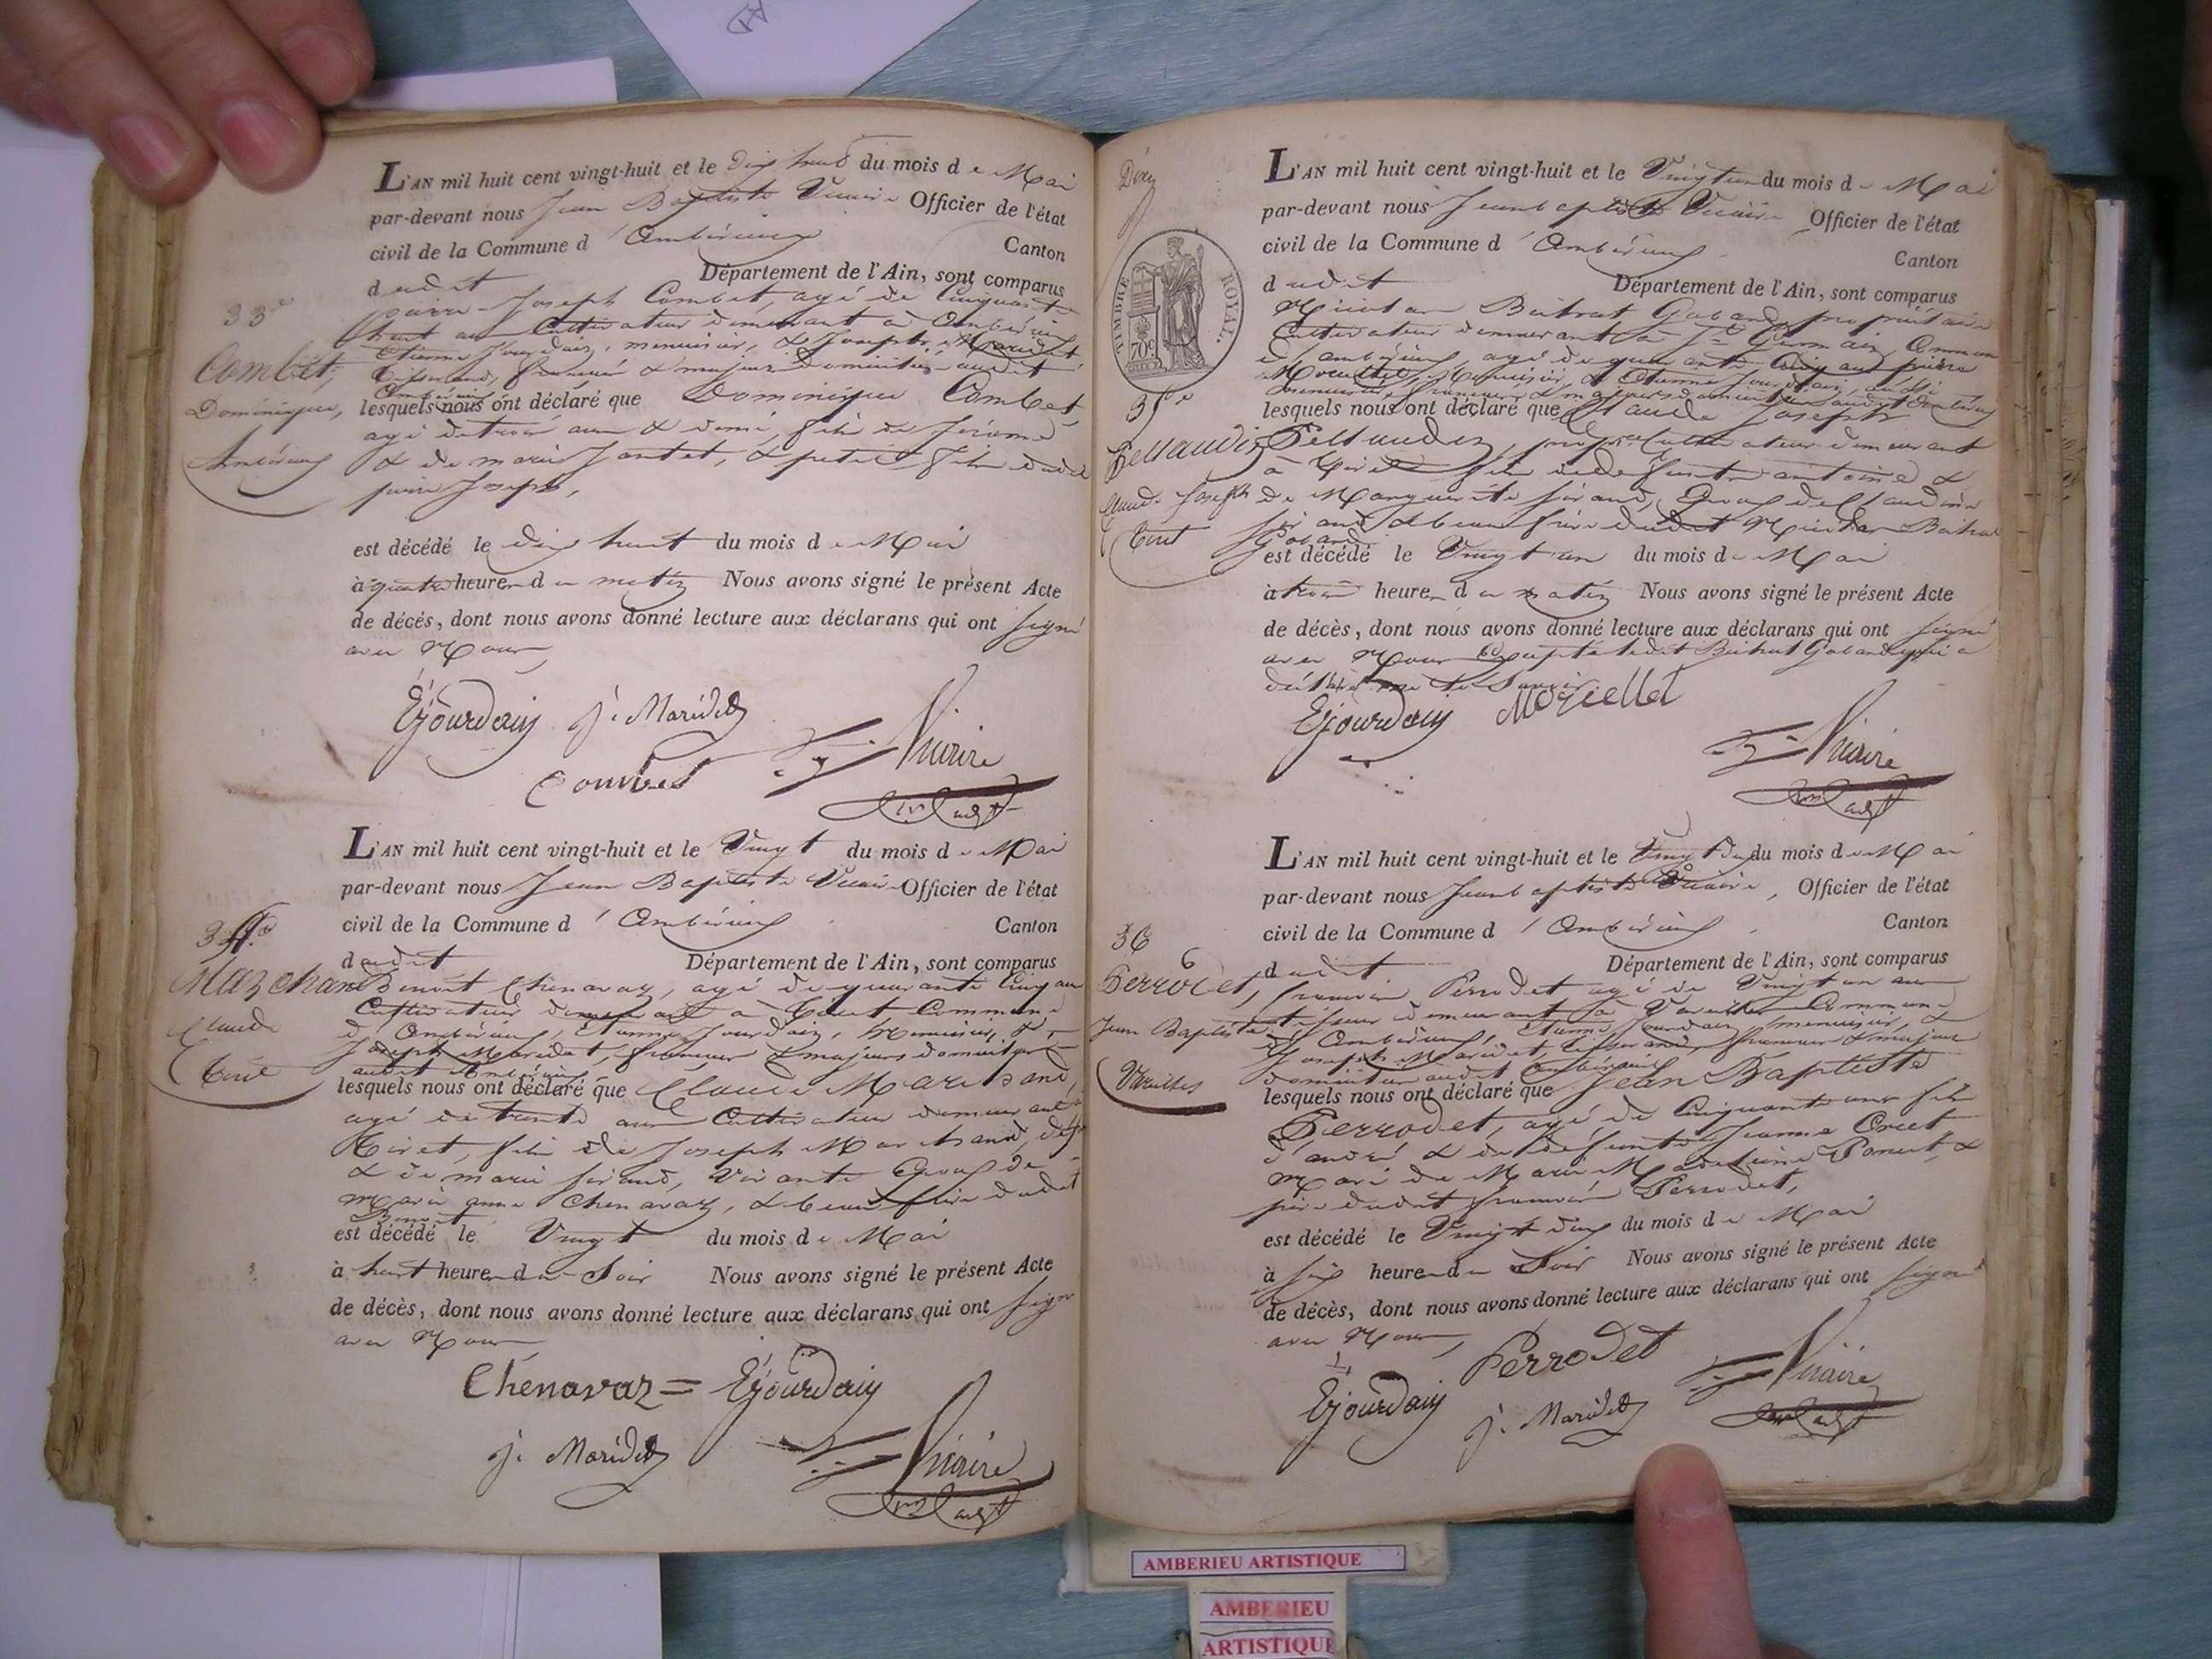 L'AN mil huit cent vingt-huit et le dix huit du mois de Mai
par-devant nous Jean Baptiste Vicaire Officier de l'état
civil de la Commune d'Ambérieux Canton
dudit Département de l'Ain, sont comparus
33e
pierre Joseph Combet, agé de Cinquante
huit ans Cultivateur demeurant à Ambérieux
Etienne Jourdain, menuisier, & Joseph Maridet
Tisserand, français & majeurs domiciliés audit
Ambérieux
Combet,
Dominique,
Ambérieux
lesquels nous ont déclaré que Dominique Combet
agé de trois ans & demi, fils de Jérome
& de marie Jantet, & petit fils dudit
pierre Joseph,
est décédé le dix huit du mois de Mai
à quatre heures du matin Nous avons signé le présent Acte
de décès, dont nous avons donné lecture aux déclarans qui ont signé
avec Nous,
Ejourdain J. Maridet
Combet Vicaire
L'AN mil huit cent vingt-huit et le Vingt du mois de Mai
par-devant nous Jean Baptiste Vicaire Officier de l'état
civil de la Commune d'Ambérieux Canton
dudit Département de l'Ain, sont comparus
34e
Marchand
Claude
Tiret
Benoit Chenavaz, agé de quarante Cinq ans
Cultivateur demeurant à Tiret Commune
d'Ambérieux, Etienne Jourdain, Menuisier, &
Joseph Maridet, français & majeurs domiciliés
audit Ambérieux
lesquels nous ont déclaré que Claude Marchand,
agé de trente ans Cultivateur demeurant à
Tiret, fils de Joseph Marchand,
& de marie Sirand, vivante Epoux de
Marie anne Chenavaz, & beau frère dudit
Benoit
est décédé le Vingt du mois de Mai
à huit heures du Soir Nous avons signé le présent Acte
de décès, dont nous avons donné lecture aux déclarans qui ont signé
avec Nous,
Chenavaz = Ejourdain
J. Maridet Vicaire
L'AN mil huit cent vingt-huit et le Vingt un du mois de Mai
par-devant nous Jean baptiste Vicaire Officier de l'état
civil de la Commune d'Ambérieux Canton
dudit Département de l'Ain, sont comparus
TIMBRE ROYAL.
70c
35e
Nicolas Gaband propriétaire
Cultivateur demeurant à St Germain, Commune
d'Ambérieux, agé de quarante Cinq ans pierre
Morellet, Menuisier, & Etienne Jourdain, aussi
menuisier, français & majeurs domiciliés audit Ambérieux
lesquels nous ont déclaré que Claude Joseph
Claude Joseph
Tiret
Cultivateur demeurant
à Tiret fils de défunt antoine &
de Marguerite Sirand, Epoux de Claudine
Sirand & beau frère dudit Nicolas
Gaband
est décédé le Vingt un du mois de Mai
à trois heures du matin Nous avons signé le présent Acte
de décès, dont nous avons donné lecture aux déclarans qui ont signé
avec Nous Excepté ledit Gaband qui a
déclaré ne le Savoir
Ejourdain Morellet
Vicaire
L'AN mil huit cent vingt-huit et le Vingt dix du mois de Mai
par-devant nous Jean baptiste Vicaire, Officier de l'état
civil de la Commune d'Ambérieux Canton
dudit Département de l'Ain, sont comparus
36
Perrodet,
Jean Baptiste
Vareilles
françois Perrodet agé de Vingt un ans
demeurant à Vareilles Commune
d'Ambérieux, Etienne Jourdain, menuisier, &
Joseph Maridet, tisserand, français & majeurs
domiciliés audit Ambérieux
lesquels nous ont déclaré que Jean Baptiste
Perrodet, agé de Cinquante ans fils
d'andré & de défunte Jeanne
Mari de Marie Madeleine Poncet, &
père dudit françois Perrodet,
est décédé le Vingt dix du mois de Mai
à six heures du Soir Nous avons signé le présent Acte
de décès, dont nous avons donné lecture aux déclarans qui ont signé
avec Nous,
Perrodet Vicaire
Ejourdain J. Maridet
AMBERIEU ARTISTIQUE
AMBERIEU
ARTISTIQUE